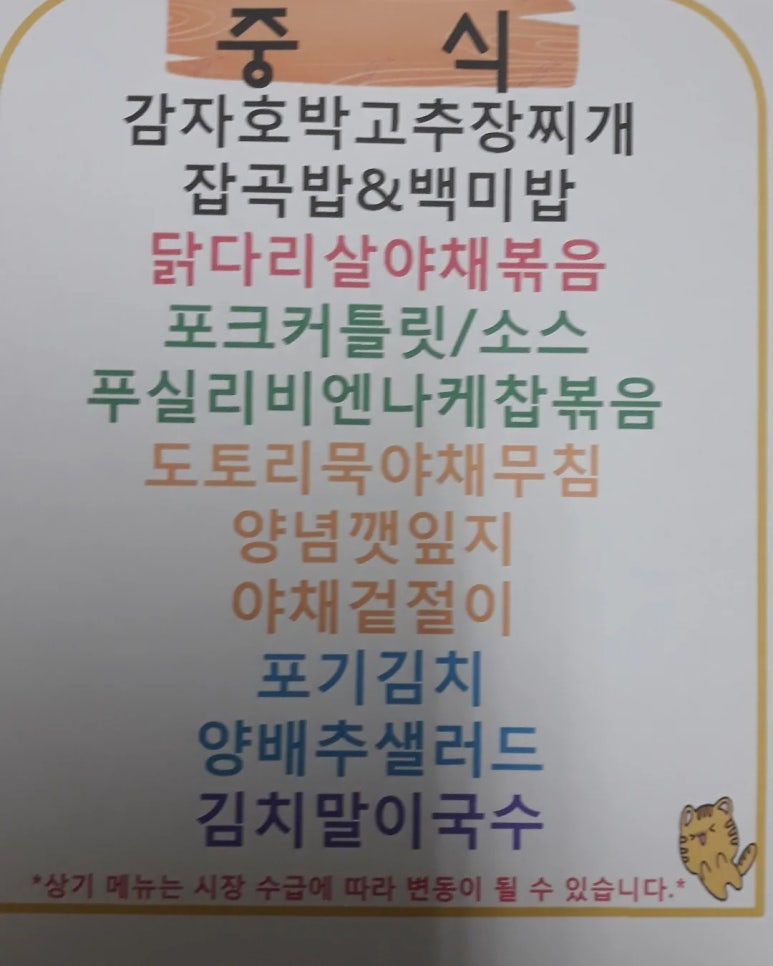 중 식
감자호박고추장찌개
잡곡밥&백미밥
닭다리살야채볶음
포크커틀릿/소스
푸실리비엔나케찹볶음
도토리묵야채무침
양념깻잎지
야채겉절이
포기김치
양배추샐러드
김치말이국수
*상기 메뉴는 시장 수급에 따라 변동이 될 수 있습니다.*